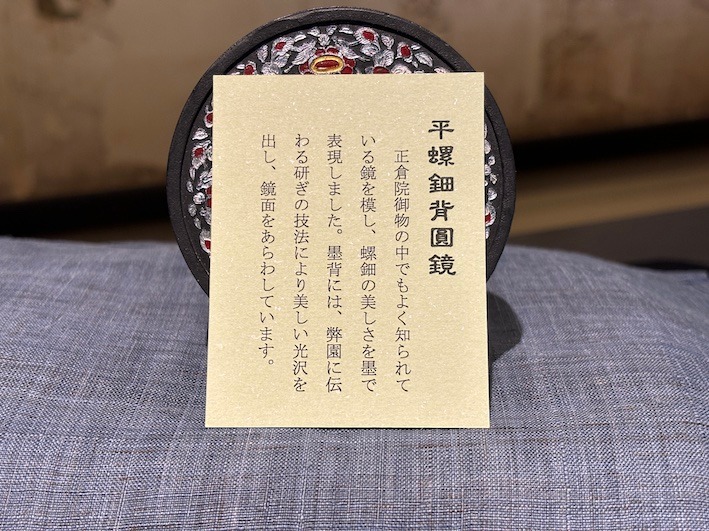 平螺鈿背圓鏡
正倉院御物の中でもよく知られて
いる鏡を模し、螺鈿の美しさを墨で
表現しました。墨背には、弊園に伝
わる研ぎの技法により美しい光沢を
出し、鏡面をあらわしています。